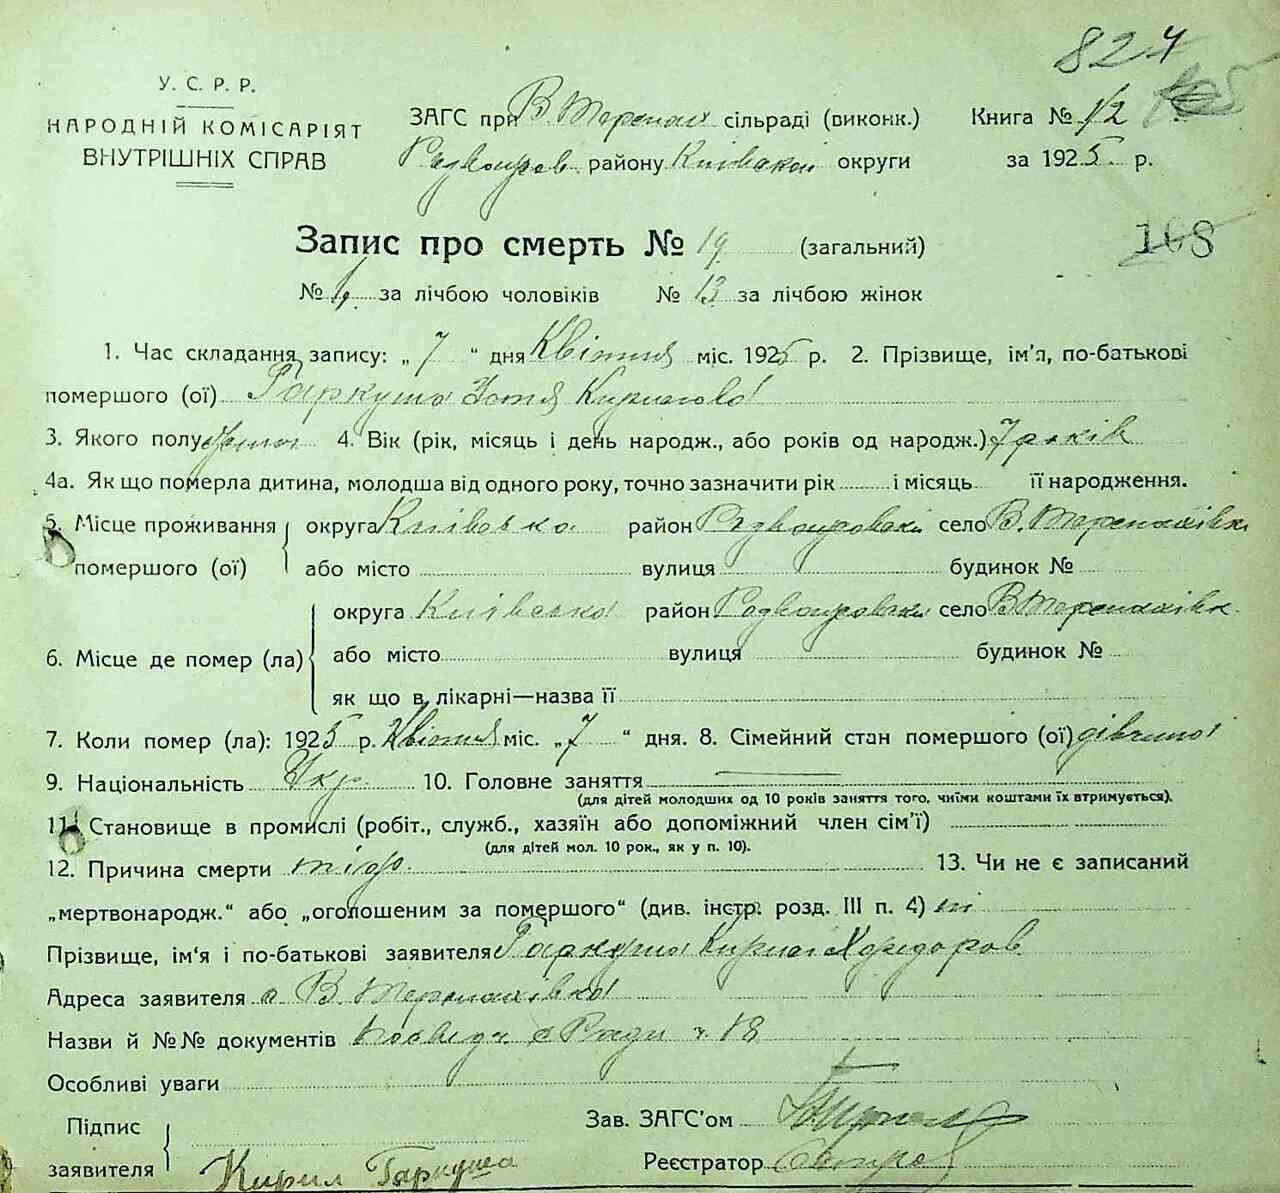 824
У. С. Р. Р.
НАРОДНІЙ КОМІСАРІЯТ
ВНУТРІШНІХ СПРАВ
ЗАГС при В. Терпах сільраді (виконк.)
району Київської округи
Книга № 1/2
за 1925 р.
Запис про смерть № 19 (загальний)
108
№ за лічбою чоловіків № 13 за лічбою жінок
1. Час складання запису: „ 7 “ дня Квітня міс. 1925 р. 2. Прізвище, ім'я, по-батькові
помершого (ої) Гаркуша Кирилова
3. Якого полу 4. Вік (рік, місяць і день народж., або років од народж.) 7 років
4а. Як що померла дитина, молодша від одного року, точно зазначити рік і місяць її народження.
5. Місце проживання
помершого (ої)
округа Київська район село
або місто вулиця будинок №
6. Місце де помер (ла)
округа Київська район село
або місто вулиця будинок №
як що в лікарні—назва її
7. Коли помер (ла): 1925 р. Квітня міс. „ 7 “ дня. 8. Сімейний стан помершого (ої) дівчина
9. Національність Укр. 10. Головне заняття —
(для дітей молодших од 10 років заняття того, чиїми коштами їх втримується).
11. Становище в промислі (робіт., служб., хазяїн або допоміжний член сім'ї)
(для дітей мол. 10 рок., як у п. 10).
12. Причина смерти тиф 13. Чи не є записаний
„мертвонародж.“ або „оголошеним за помершого“ (див. інстр. розд. III п. 4) ні
Прізвище, ім'я і по-батькові заявителя Гаркуша Кирил
Адреса заявителя с В.
Назви й №№ документів посвідч. с Ради ч. 18
Особливі уваги
Підпис
заявителя
Кирил Гаркуша
Зав. ЗАГС'ом
Реєстратор